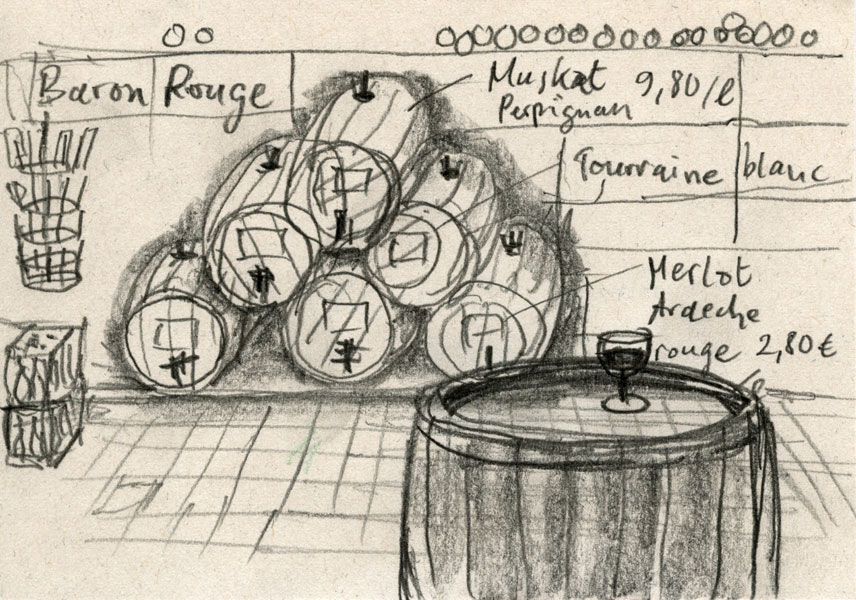 Baron Rouge
Muskat 9,80/l
Perpignan
Tourraine blanc
Merlot
Ardeche
rouge 2,80 €